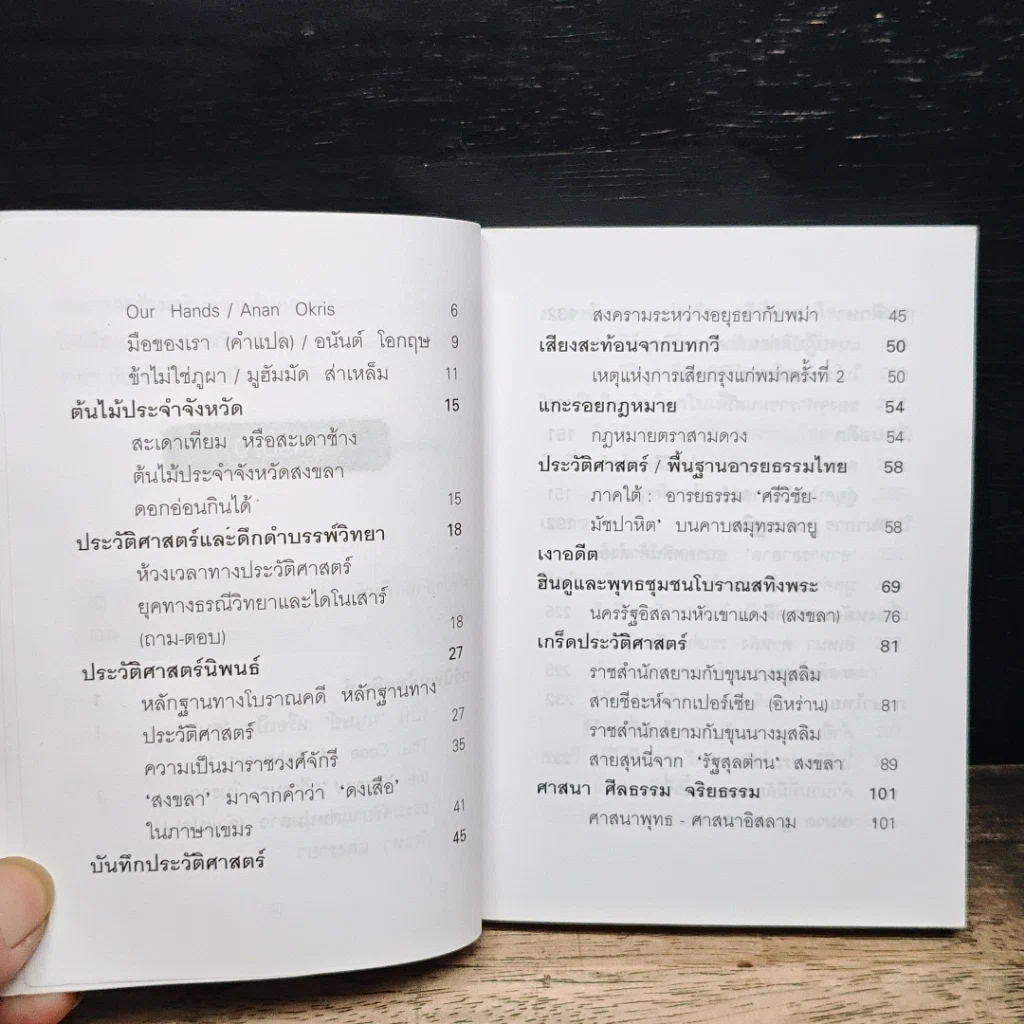 Our Hands / Anan Okris 6
มือของเรา (คำแปล) / อนันต์ โอกฤษ 9
ข้าไม่ใช่ภูผา / มูฮัมมัด ส่าเหล็ม 11
ต้นไม้ประจำจังหวัด 15
สะเดาเทียม หรือสะเดาช้าง
ต้นไม้ประจำจังหวัดสงขลา
ดอกอ่อนกินได้ 15
ประวัติศาสตร์และดึกดำบรรพ์วิทยา 18
ห้วงเวลาทางประวัติศาสตร์
ยุคทางธรณีวิทยาและไดโนเสาร์
(ถาม-ตอบ) 18
ประวัติศาสตร์นิพนธ์ 27
หลักฐานทางโบราณคดี หลักฐานทาง
ประวัติศาสตร์ 27
ความเป็นมาราชวงศ์จักรี 35
'สงขลา' มาจากคำว่า 'ดงเสือ'
ในภาษาเขมร 41
บันทึกประวัติศาสตร์ 45
สงครามระหว่างอยุธยากับพม่า 45
เสียงสะท้อนจากบทกวี 50
เหตุแห่งการเสียกรุงแก่พม่าครั้งที่ 2 50
แกะรอยกฎหมาย 54
กฎหมายตราสามดวง 54
ประวัติศาสตร์ / พื้นฐานอารยธรรมไทย 58
ภาคใต้ : อารยธรรม 'ศรีวิชัย-
มัชปาหิต' บนคาบสมุทรมลายู 58
เงาอดีต
ฮินดูและพุทธชุมชนโบราณสทิงพระ 69
นครรัฐอิสลามหัวเขาแดง (สงขลา) 76
เกร็ดประวัติศาสตร์ 81
ราชสำนักสยามกับขุนนางมุสลิม
สายชีอะห์จากเปอร์เซีย (อิหร่าน) 81
ราชสำนักสยามกับขุนนางมุสลิม
สายสุหนี่จาก 'รัฐสุลต่าน' สงขลา 89
ศาสนา ศีลธรรม จริยธรรม 101
ศาสนาพุทธ - ศาสนาอิสลาม 101